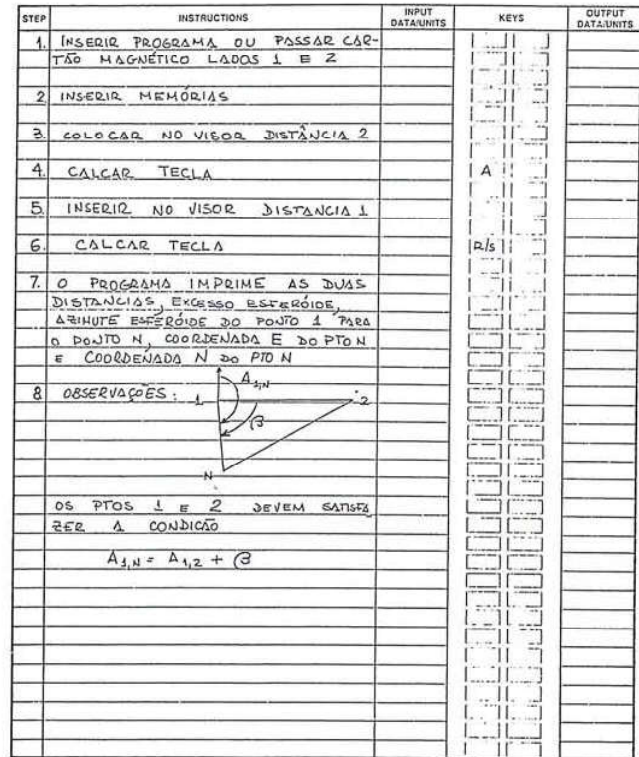 STEP INSTRUCTIONS INPUT DATA/UNITS KEYS OUTPUT DATA/UNITS
1. INSERIR PROGRAMA OU PASSAR CAR-
TÃO MAGNÉTICO LADOS 1 E 2
2 INSERIR MEMÓRIAS
3. COLOCAR NO VISOR DISTÂNCIA 2
4. CALCAR TECLA A
5. INSERIR NO VISOR DISTANCIA 1
6. CALCAR TECLA R/S
7. O PROGRAMA IMPRIME AS DUAS
DISTANCIAS, EXCESSO ESFERÓIDE,
AZIMUTE ESFERÓIDE DO PONTO 1 PARA
O PONTO N, COORDENADA E DO PTO N
E COORDENADA N DO PTO N
8 OBSERVAÇÕES:
A1,N
1 2
β
N
OS PTOS 1 E 2 DEVEM SATISFA
ZER A CONDICÃO
A1,N = A1,2 + β